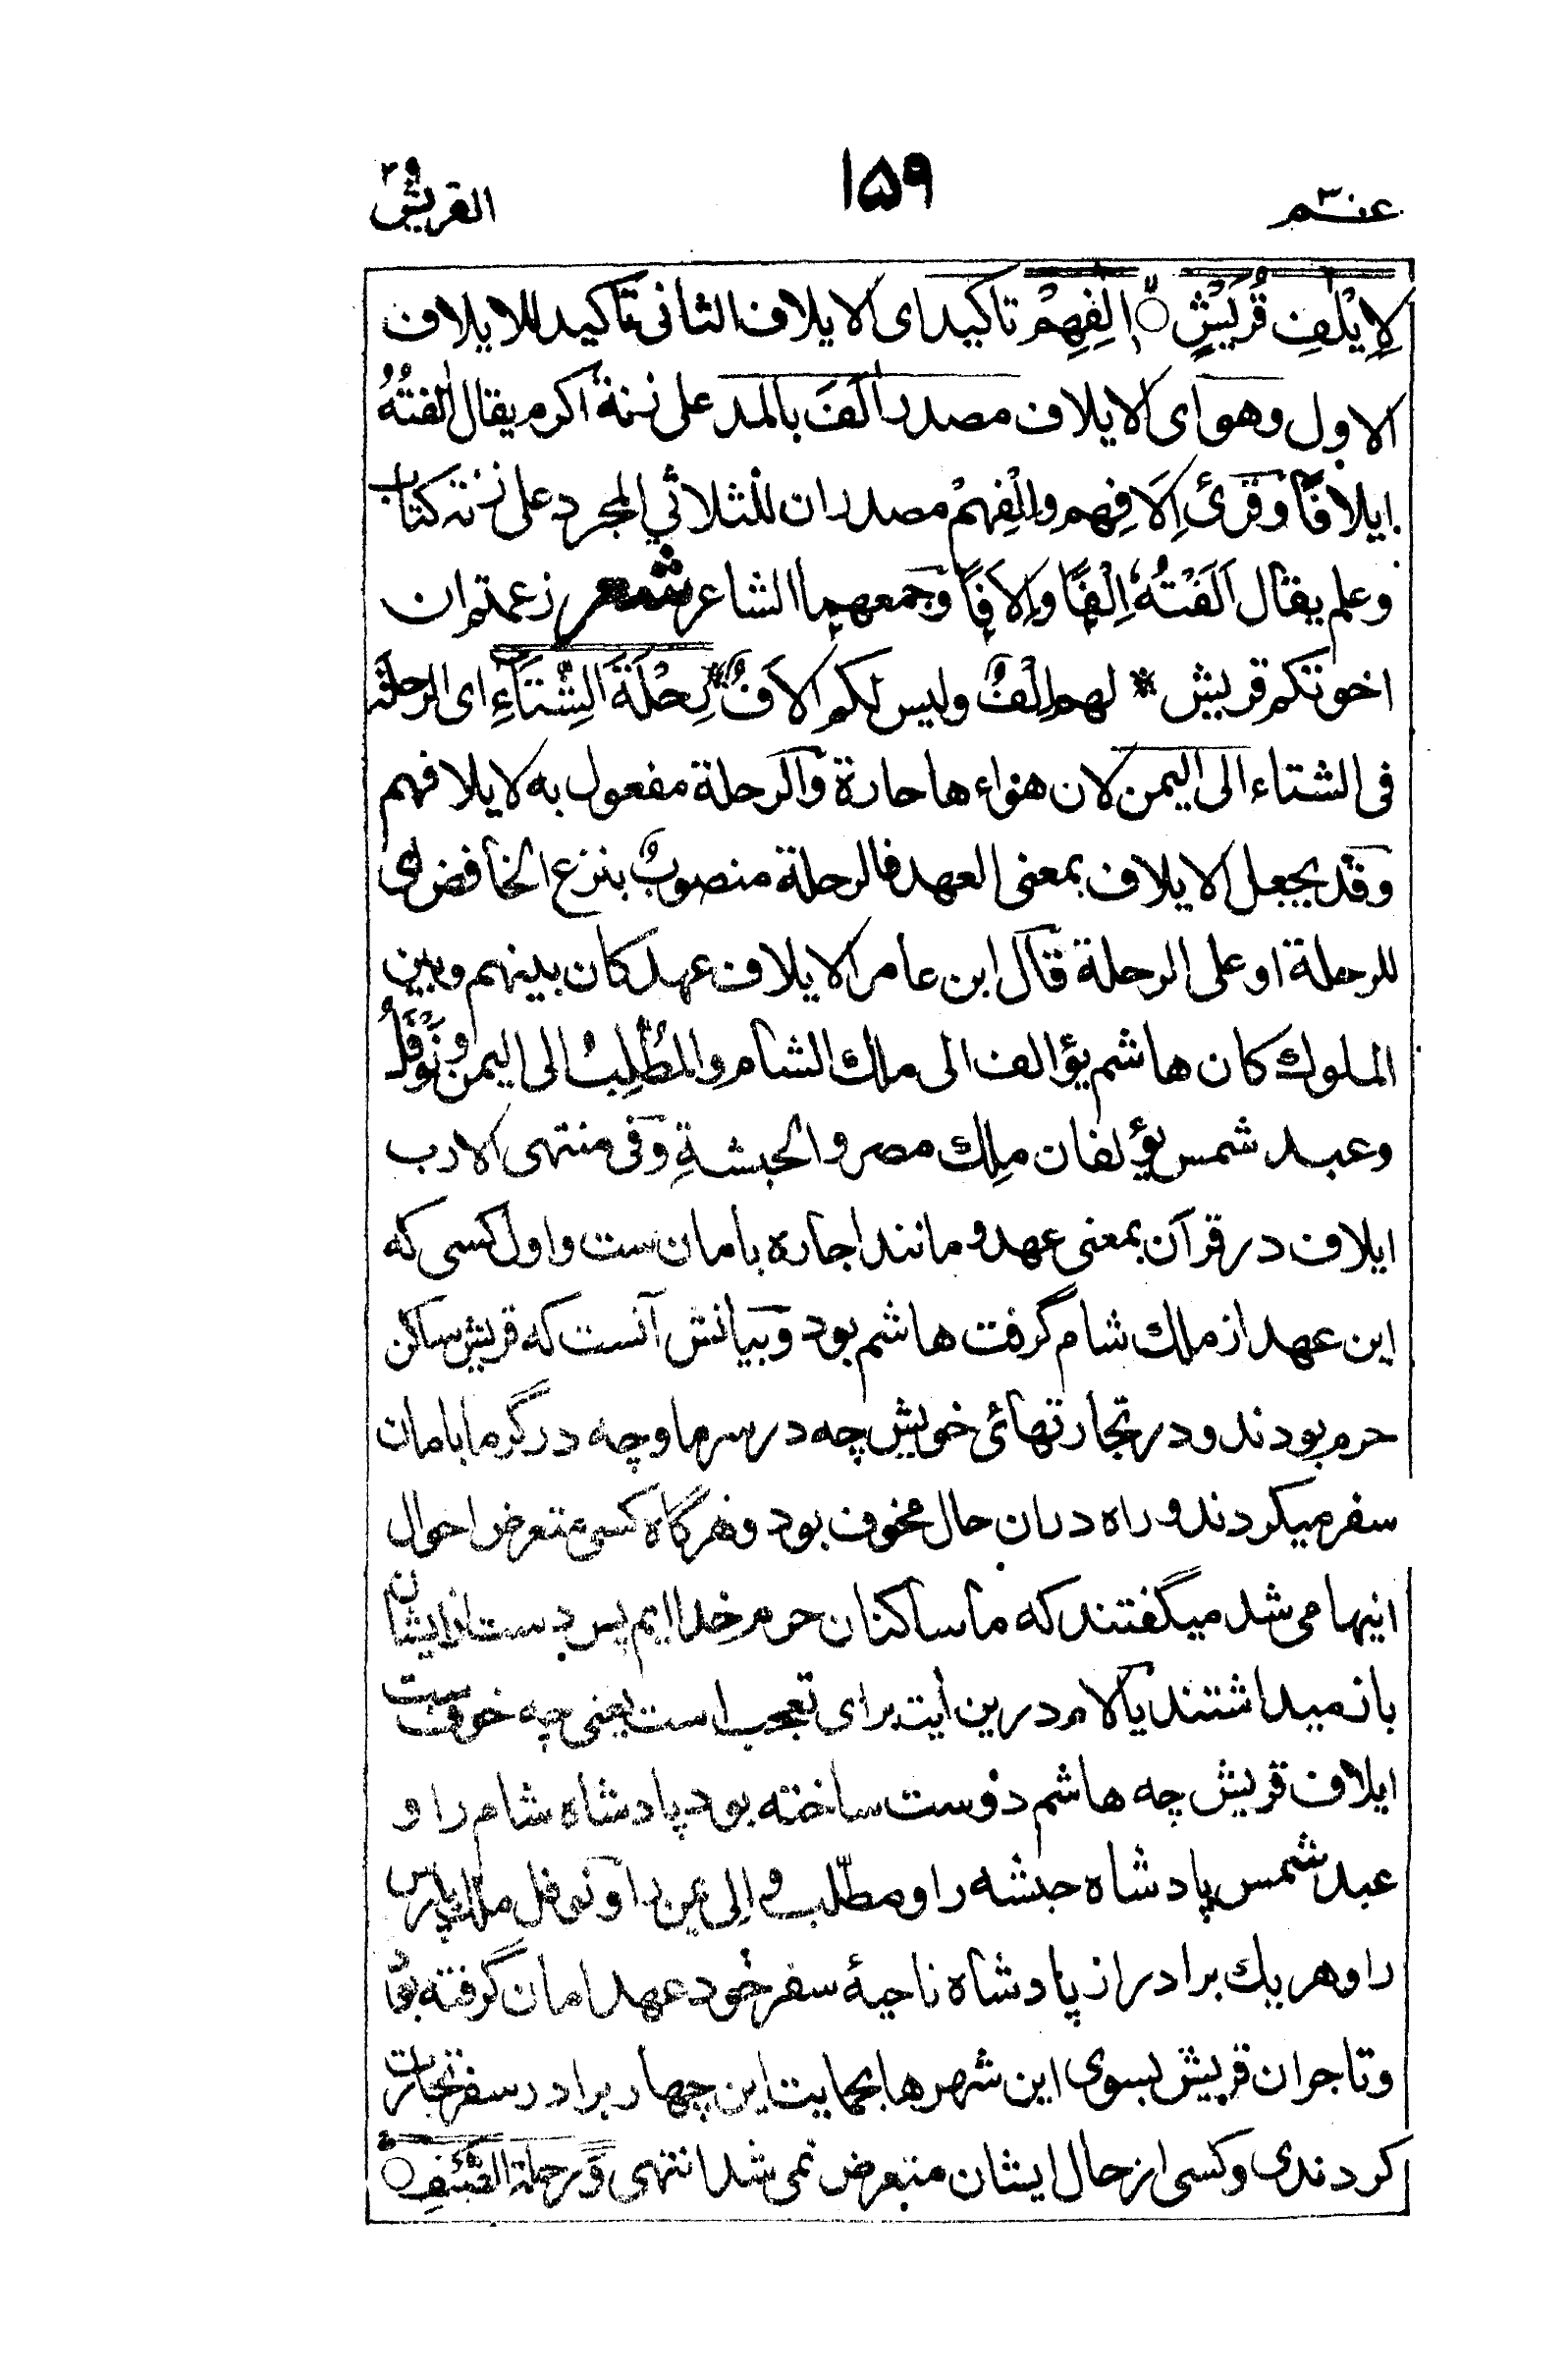 عم ٣٠
١٥٩
القريش
لِاِيْلٰفِ قُرَيْشٍ اِلٰفِهِمْ تاكيد اى الايلاف الثانى تاكيد للايلاف
الاول وهو اى الايلاف مصدر اٰلَفَ بالمد على زنة اكرم يقال اٰلفتُهُ
ايلافًا وقرئ اِلَافِهم واِلْفِهِمْ مصدران للثلاثي المجرد على زنة كتاب
وعلم يقال اَلَفْتُهُ اِلْفًا واِلافًا وجمعهما الشاعر شعر زعمتم ان
اخوتكم قريش * لهم اِلْفٌ وليس لكم الافٌ * رِحْلَةَ الشِّتَآءِ اى الرحلة
فى الشتاء الى اليمن لان هواءها حارة والرحلة مفعول به لايلافهم
وقد يجعل الايلاف بمعنى العهد فالرحلة منصوبٌ بنزع الخافض اى
للرحلة او على الرحلة قال ابن عامر الايلاف عهد كان بينهم وبين
الملوك كان هاشم يؤالف الى ملك الشام والمُطَّلِبُ الى اليمن ونَوْفَلُ
وعبد شمس يؤلفان ملِك مصر والحبشةِ وفى منتهى الادب
ايلاف در قرآن بمعنى عهد و مانند اجاره بامان ست و اول كسى كه
اين عهد از ملك شام گرفت هاشم بود و بيانش آنست كه قريش ساكن
حرم بودند و در تجارتهائ خويش چه در سرما و چه در گرما بامان
سفر ميكردند و راه دران حال مخوف بود و هرگاه كسى متعرض احوال
اينها مى شد ميگفتند كه ما ساكنان حرم خداايم پس دست از ايشان
باز ميداشتند يا لام درين ايت براى تعجب است يعنى چه خوفست
ايلاف قريش چه هاشم دوست ساخته بود پادشاه شام را و
عبد شمس پادشاه حبشه را و مطّلب والى يمن را و نوفل ملك پارس
را و هر يك برادر از پادشاه ناحيهٔ سفر خود عهد امان گرفته بود
و تاجران قريش بسوى اين شهرها بحمايت اين چهار برادر سفر تجارت
كردندى و كسى از حال ايشان متعرض نمى شد انتهى وَرحلة الصَّيْفِ